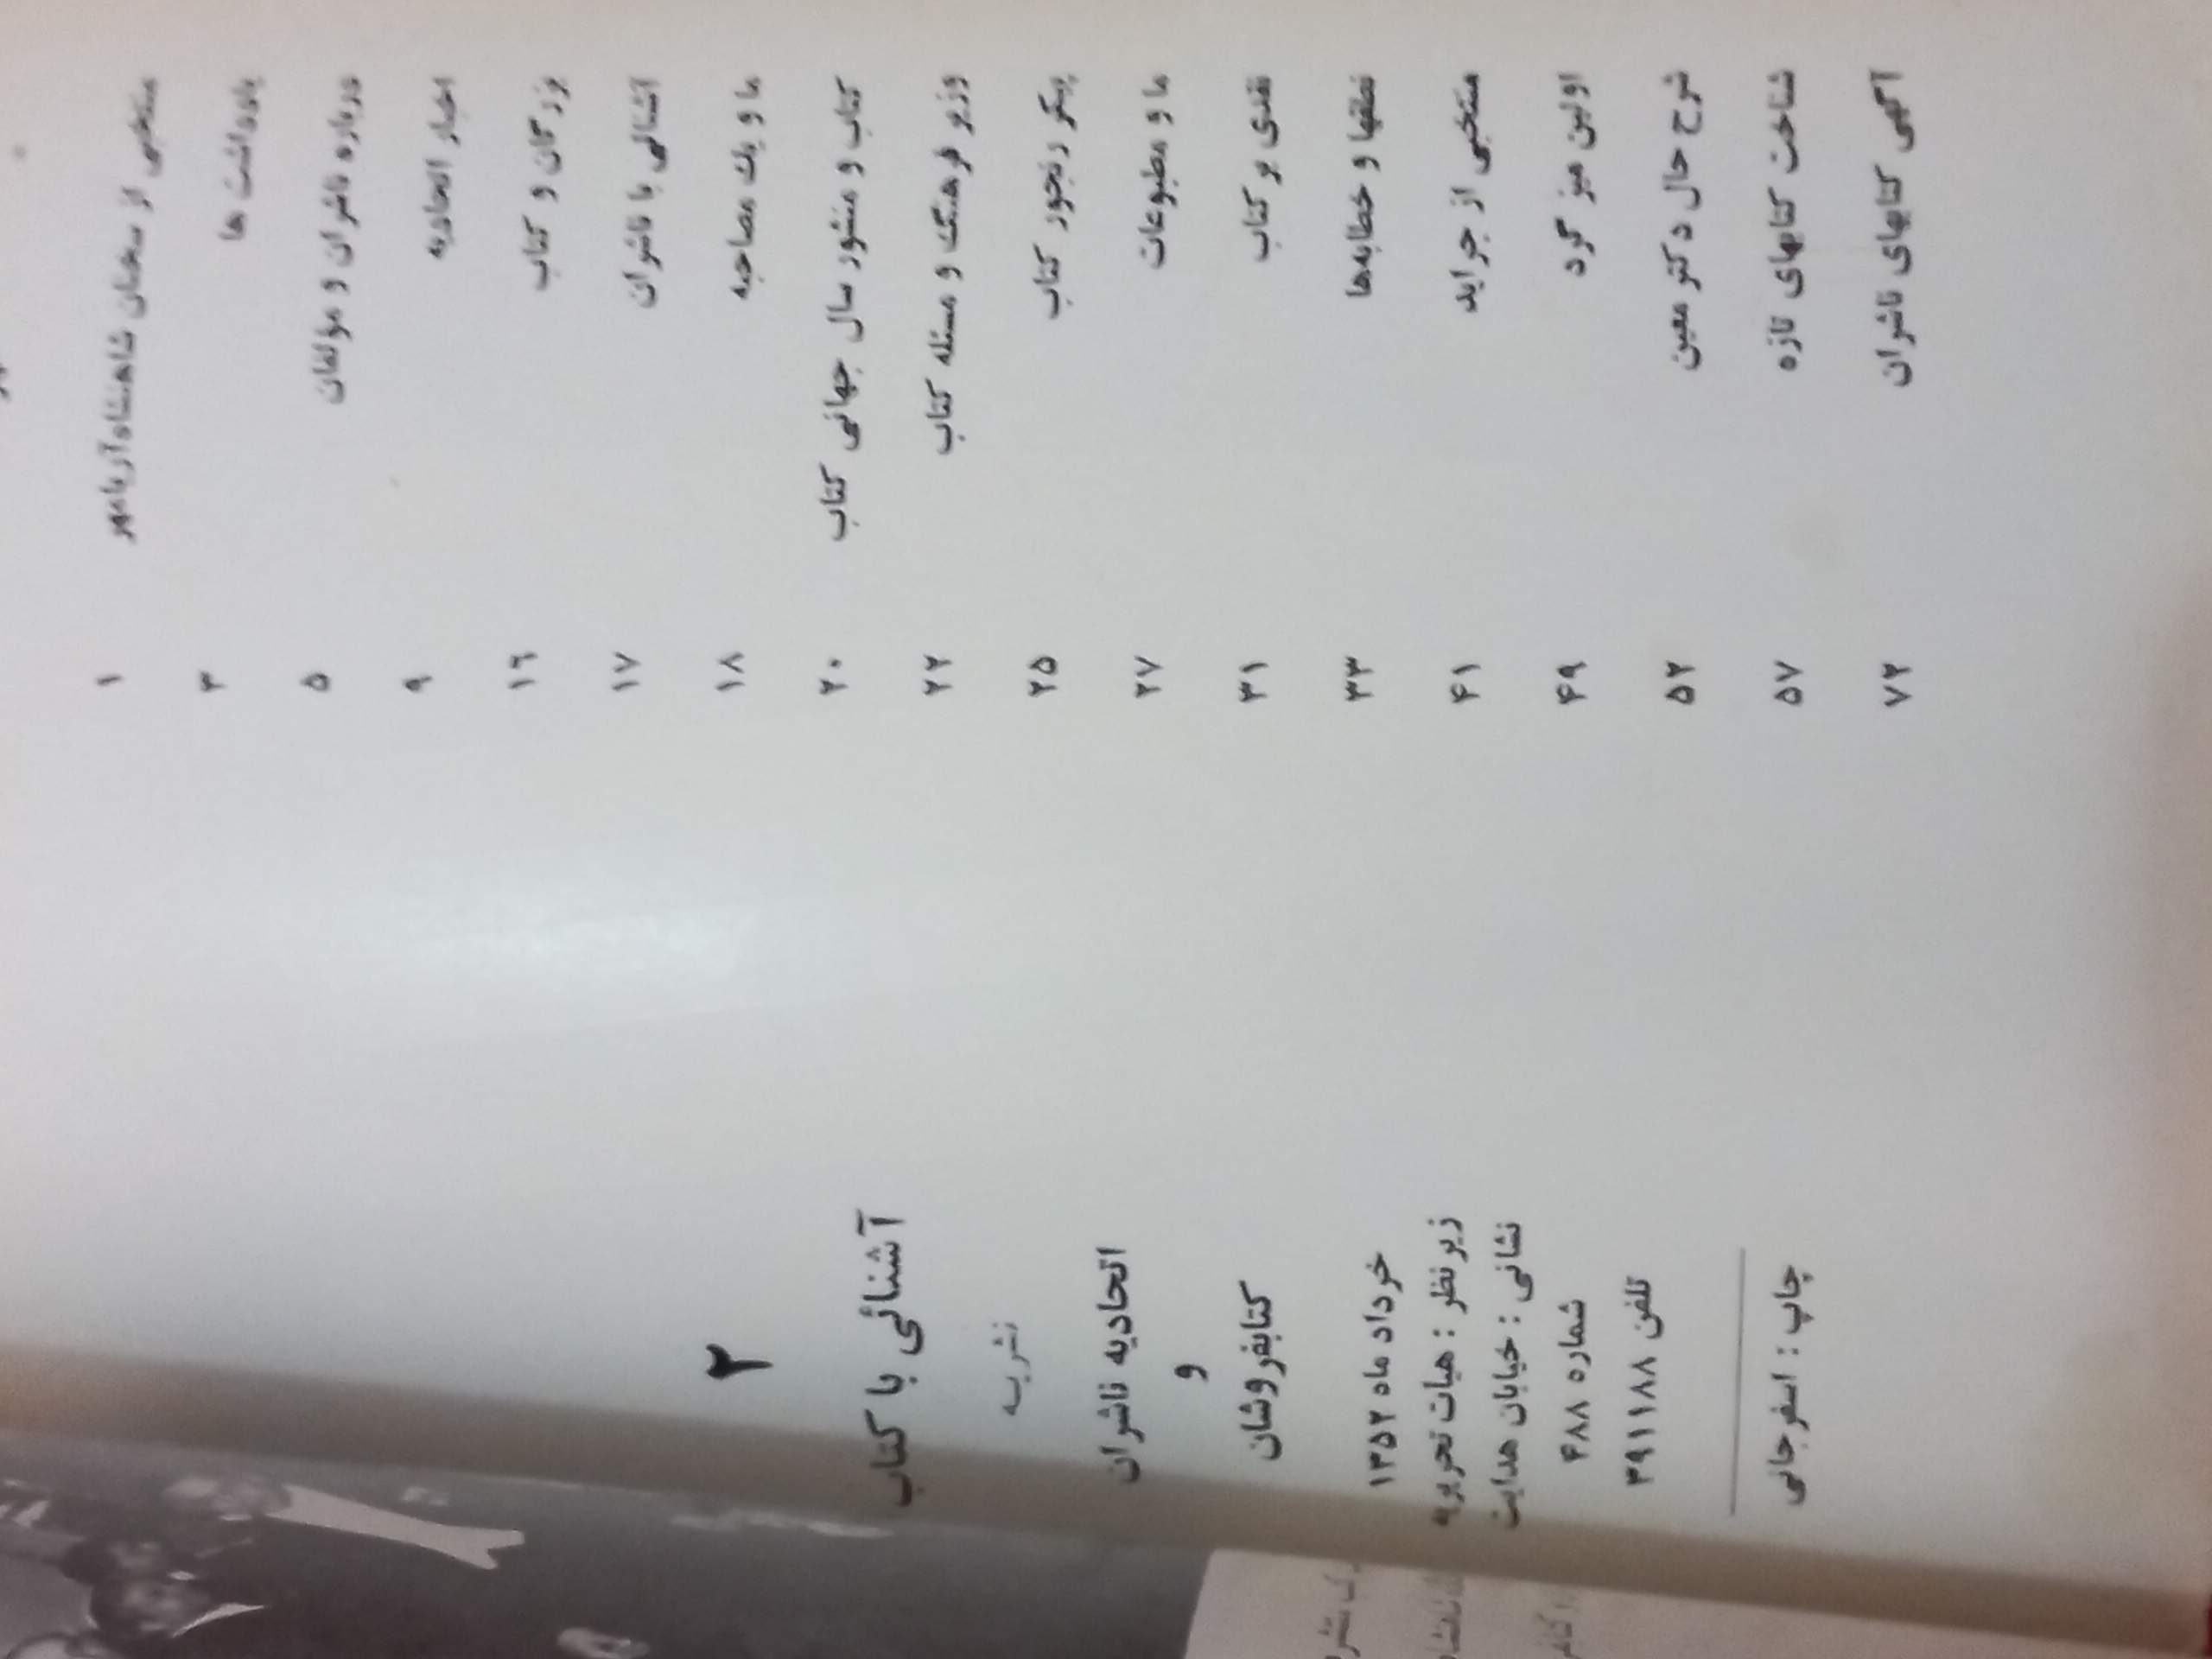 منتخبی از سخنان شاهنشاه آریامهر ۱
یادداشت ها ۳
درباره ناشران و مؤلفان ۵
اخبار اتحادیه ۹
بزرگان و کتاب ۱۶
آشنائی با ناشران ۱۷
ما و یك مصاحبه ۱۸
کتاب و منشور سال جهانی کتاب ۲۰
وزیر فرهنگ و مسئله کتاب ۲۲
پیکر رنجور کتاب ۲۵
ما و مطبوعات ۲۷
نقدی بر کتاب ۳۱
نطقها و خطابه‌ها ۳۳
منتخبی از جراید ۴۱
اولین میز گرد ۴۹
شرح حال دکتر معین ۵۲
شناخت کتابهای تازه ۵۷
آگهی کتابهای ناشران ۷۲
۲
آشنائی با کتاب
نشریه
اتحادیه ناشران
و
کتابفروشان
خرداد ماه ۱۳۵۲
زیر نظر : هیات تحریریه
نشانی : خیابان هدایت
شماره ۴۸۸
تلفن ۳۹۱۱۸۸
چاپ : اسفرجانی